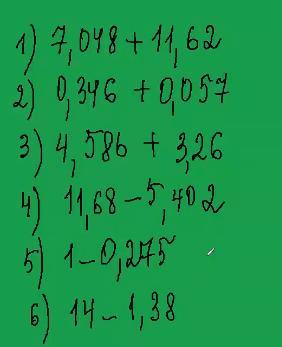 1) 7,048 + 11,62
2) 0,346 + 0,057
3) 4,586 + 3,26
4) 11,68 - 5,402
5) 1 - 0,275
6) 14 - 1,38